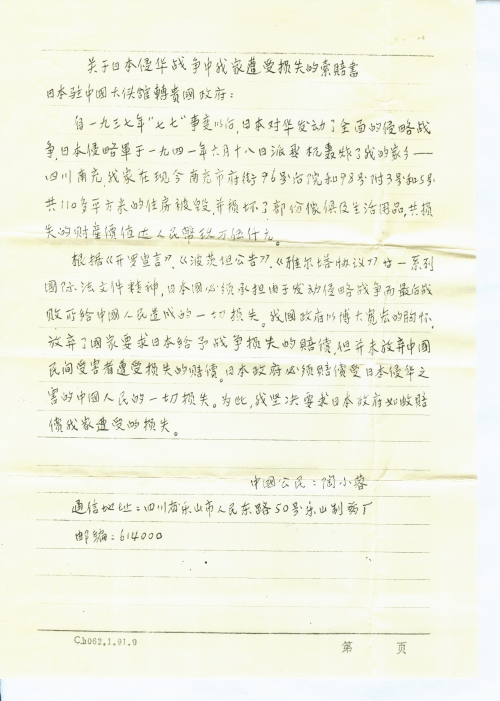 关于日本侵华战争中我家遭受损失的索赔書
日本駐中國大使館轉貴國政府：
自一九三七年“七七”事变以后，日本对华发动了全面的侵略战
争，日本侵略軍于一九四一年六月十八日派飛机轟炸了我的家乡——
四川南充，我家在现今南充市府街96号台院和98号附3号和5号
共110多平方米的住房被毁，并损坏了部份傢俱及生活用品，共损
失的财産價值达人民幣玖万伍仟元。
根据《开罗宣言》、《波茨坦公告》、《雅尔塔协议》廿一系列
国际法文件精神，日本国必须承担由于发动侵略战争而最后战
败所给中國人民造成的一切损失。我國政府以博大宽宏的胸怀，
放弃了國家要求日本给予战争损失的賠偿，但并未放弃中國
民间受害者遭受损失的賠偿。日本政府必须賠偿受日本侵华之
害的中國人民的一切损失。为此，我坚决要求日本政府如数賠
償我家遭受的损失。
中國公民：陶小蓉
通信地址：四川省乐山市人民东路50号乐山制药厂
邮编：614000
Ch062.1.91.9
第 页